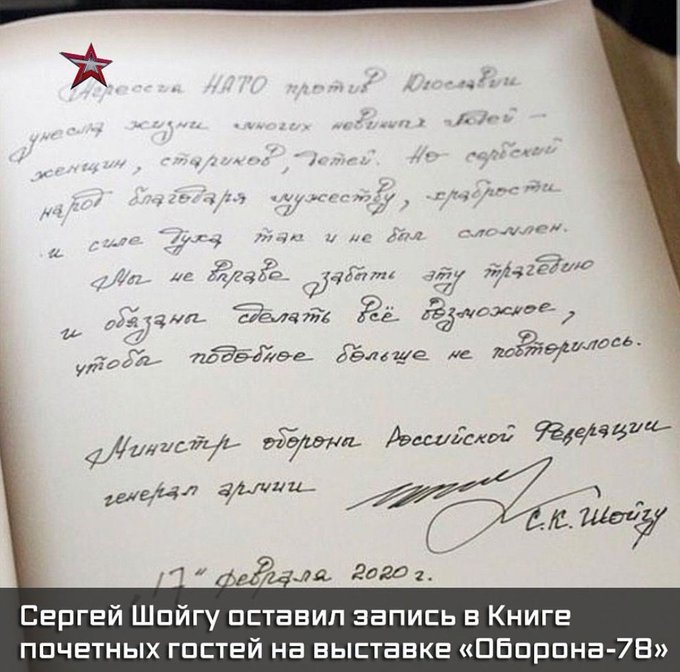 Агрессия НАТО против Югославии
унесла жизни многих невинных людей –
женщин, стариков, детей. Но сербский
народ благодаря мужеству, храбрости
и силе духа так и не был сломлен.
Мы не вправе забыть эту трагедию
и обязаны сделать всё возможное,
чтобы подобное больше не повторилось.
Министр обороны Российской Федерации
генерал армии
С.К. Шойгу
„17“ февраля 2020 г.
Сергей Шойгу оставил запись в Книге
почетных гостей на выставке «Оборона-78»